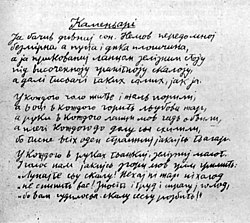 Каменярі
Я бачив дивний сон. Немов передо мною
безмірна а пуста і дика площина,
а я прикований ланцем залізним стою
під височенною гранітною скалою,
а далі тисячі таких самих, як я.
У кождого чоло життє і жаль порили,
і в оці кождого горить любови жар,
а руки в кождого ланці мов гадь обвили,
а плечі кождого до долу ся схилили,
бо тисне всіх один страшний якийсь тягар.
У кождого в руках тяжкий, зелізний молот
і голос нам якийсь згори мов грім гримить:
„Лупайте сю скалу! Нехай ні жар ні холод
не спинить вас! Зносіть і труд і спрагу, голод,
бо вам призначено скалу сесю розбить!"